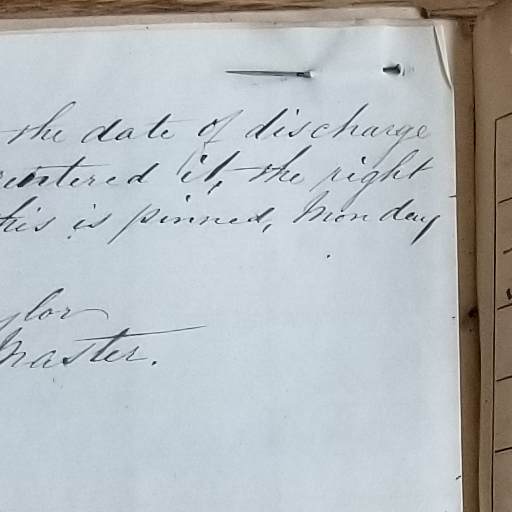 the date of discharge
entered it, the right
this is pinned, Monday
ylor
Master.